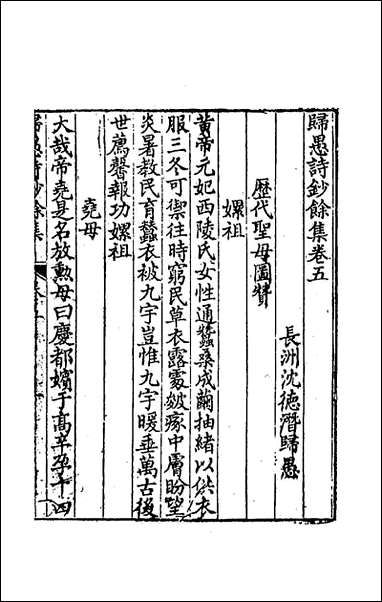 歸愚詩鈔餘集卷五
長洲沈德潛歸愚
歷代聖母圖贊
嫘祖
黃帝元妃西陵氏女性通蠶桑成繭抽緒以供衣
服三冬可禦往時窮民草衣露處皴瘃中膚盼望
炎暑教民育蠶衣被九宇豈惟九宇暖垂萬古後
世薦馨報功嫘祖
堯母
大哉帝堯是名放勲母曰慶都嬪于高辛孕十四
歸愚詩鈔餘集